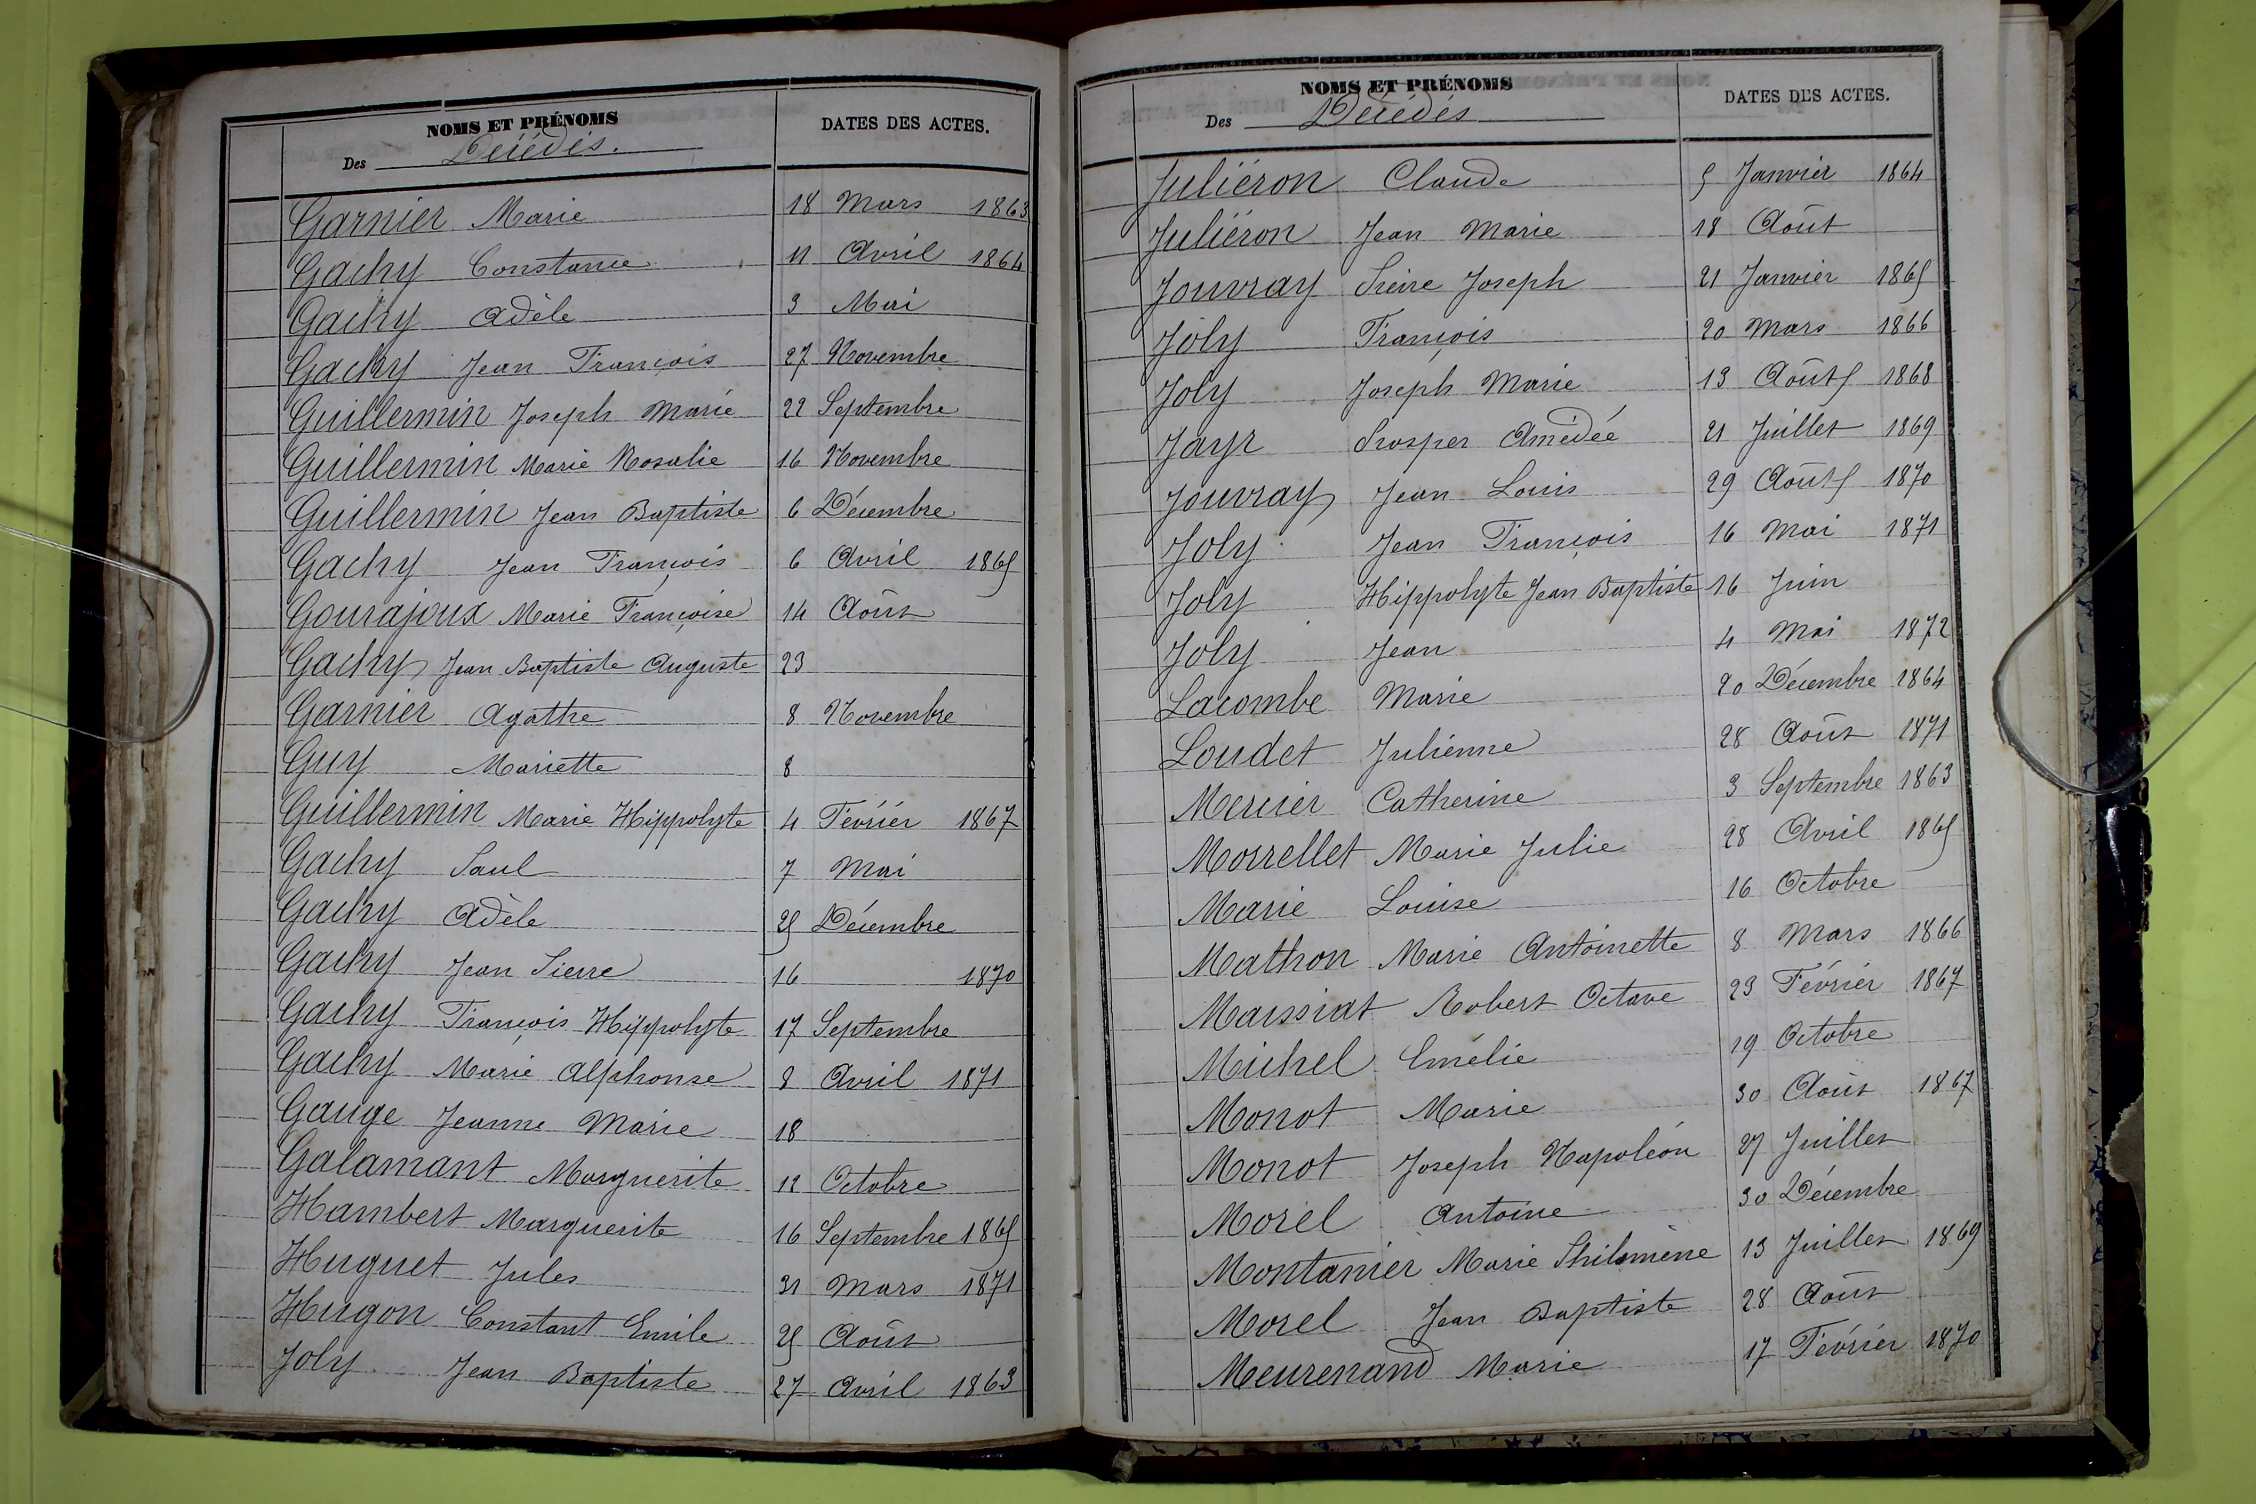 NOMS ET PRÉNOMS
Des Décédés.
DATES DES ACTES.
Garnier Marie 18 Mars 1863
Gachy Constance 11 Avril 1864
Gachy Adèle 3 Mai
Gachy Jean François 27 Novembre
Guillermin Joseph Marie 22 Septembre
Guillermin Marie Rosalie 16 Novembre
Guillermin Jean Baptiste 6 Décembre
Gachy Jean François 6 Avril 1865
Gourajoux Marie Françoise 14 Août
Gachy Jean Baptiste Auguste 23
Garnier Agathe 8 Novembre
Guy Mariette 8
Guillermin Marie Hippolyte 4 Février 1867
Gachy Paul 7 Mai
Gachy Adèle 25 Décembre
Gachy Jean Pierre 16 1870
Gachy François Hippolyte 17 Septembre
Gachy Marie Alphonse 8 Avril 1871
Gauge Jeanne Marie 18
Galamant Marguerite 12 Octobre
Hambert Marguerite 16 Septembre 1865
Huguet Jules 31 Mars 1871
Hugon Constant Emile 25 Août
Joly Jean Baptiste 27 Avril 1863
NOMS ET PRÉNOMS
Des Décédés
DATES DES ACTES.
Juliéron Claude 5 Janvier 1864
Juliéron Jean Marie 18 Août
Jouvray Pierre Joseph 21 Janvier 1865
Joly François 20 Mars 1866
Joly Joseph Marie 13 Août 1868
Jayr Prosper Amédée 21 Juillet 1869
Jouvray Jean Louis 29 Août 1870
Joly Jean François 16 Mai 1871
Joly Hippolyte Jean Baptiste 16 Juin
Joly Jean 4 Mai 1872
Lacombe Marie 20 Décembre 1864
Loudet Julienne 28 Août 1871
Mercier Catherine 3 Septembre 1863
Morrellet Marie Julie 28 Avril 1865
Marie Louise 16 Octobre
Mathon Marie Antoinette 8 Mars 1866
Maissiat Robert Octave 23 Février 1867
Michel Emélie 19 Octobre
Monot Marie 30 Août 1867
Monot Joseph Napoléon 27 Juillet
Morel Antoine 30 Décembre
Montanier Marie Philomène 13 Juillet 1869
Morel Jean Baptiste 28 Août
Meurenand Marie 17 Février 1870